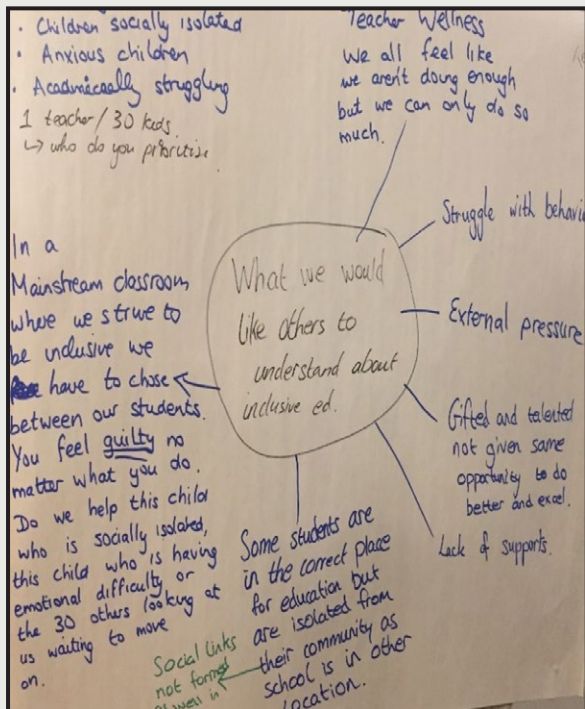 • Children socially isolated
• Anxious children
• Academically struggling
1 teacher/30 kids
↳ who do you prioritise
Teacher Wellness
We all feel like
we aren't doing enough
but we can only do so
much.
What we would
like others to
understand about
inclusive ed.
Struggle with behavio
External pressure
Gifted and talented
not given same
opportunity to do
better and excel.
Lack of supports.
In a
Mainstream classroom
where we strive to
be inclusive we
have to chose
between our students.
You feel guilty no
matter what you do.
Do we help this child
who is socially isolated,
this child who is having
emotional difficulty or
the 30 others looking at
us waiting to move
on.
Some students are
in the correct place
for education but
are isolated from
their community as
school is in other
location.
Social links
not formed
as well in